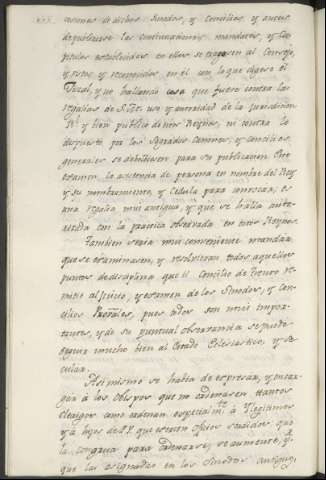 ciones de dichos Sinodos, y Concilios, y antes
de publicarse las continuaciones, mandatos, y Ca-
pitulos establecidos en ellos se traygan al Consejo,
y vistos, y reconocidos en él con lo que dixere el
Fiscal, y no hallando cosa que fuere contra las
regalias de S. M. uso y autoridad de la jurisdicion
Rl. y bien publico de mis Reynos, ni contra lo
dispuesto por los Sagrados Canones, y Concilios
generales se debolbiesen para su publicacion. Este
examen, la asistencia de persona en nombre del Rey
y su nombramiento, y Cedula para convocar; es
una regalia mui antigua, y que se halla auto-
rizada con la practica observada en estos Reynos.
Tambien seria mui conveniente mandar
que se examinasen, y resolbiesen todos aquellos
puntos de disciplina que el Concilio de Trento re-
mitio al juicio, y examen de los Sinodos, y Con-
cilios Proviales, pues todos son mui impor-
tantes, y de su puntual observancia se puede
seguir mucho bien al Estado Eclesiastico, y se-
cular.
Asi mismo se habia de expresar, y encar-
gar á los Obispos que no ordenasen tantos
Clerigos como ordenan especialmte. á Tegitimos
y á hijos de P.P. que exercen oficios serviles que
la congrua para ordenarse, se aumente, y
que las asignadas en los Sinodos antiguos